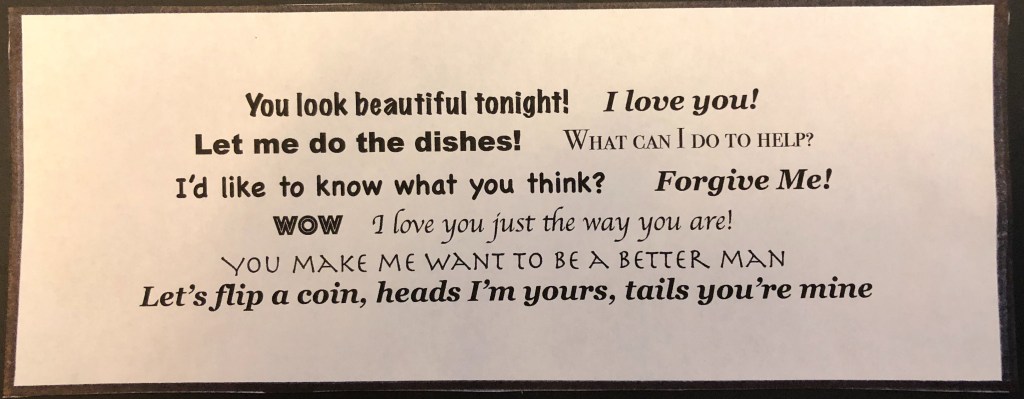 You look beautiful tonight! I love you!
Let me do the dishes! What can I do to help?
I'd like to know what you think? Forgive Me!
WOW I love you just the way you are!
YOU MAKE ME WANT TO BE A BETTER MAN
Let's flip a coin, heads I'm yours, tails you're mine